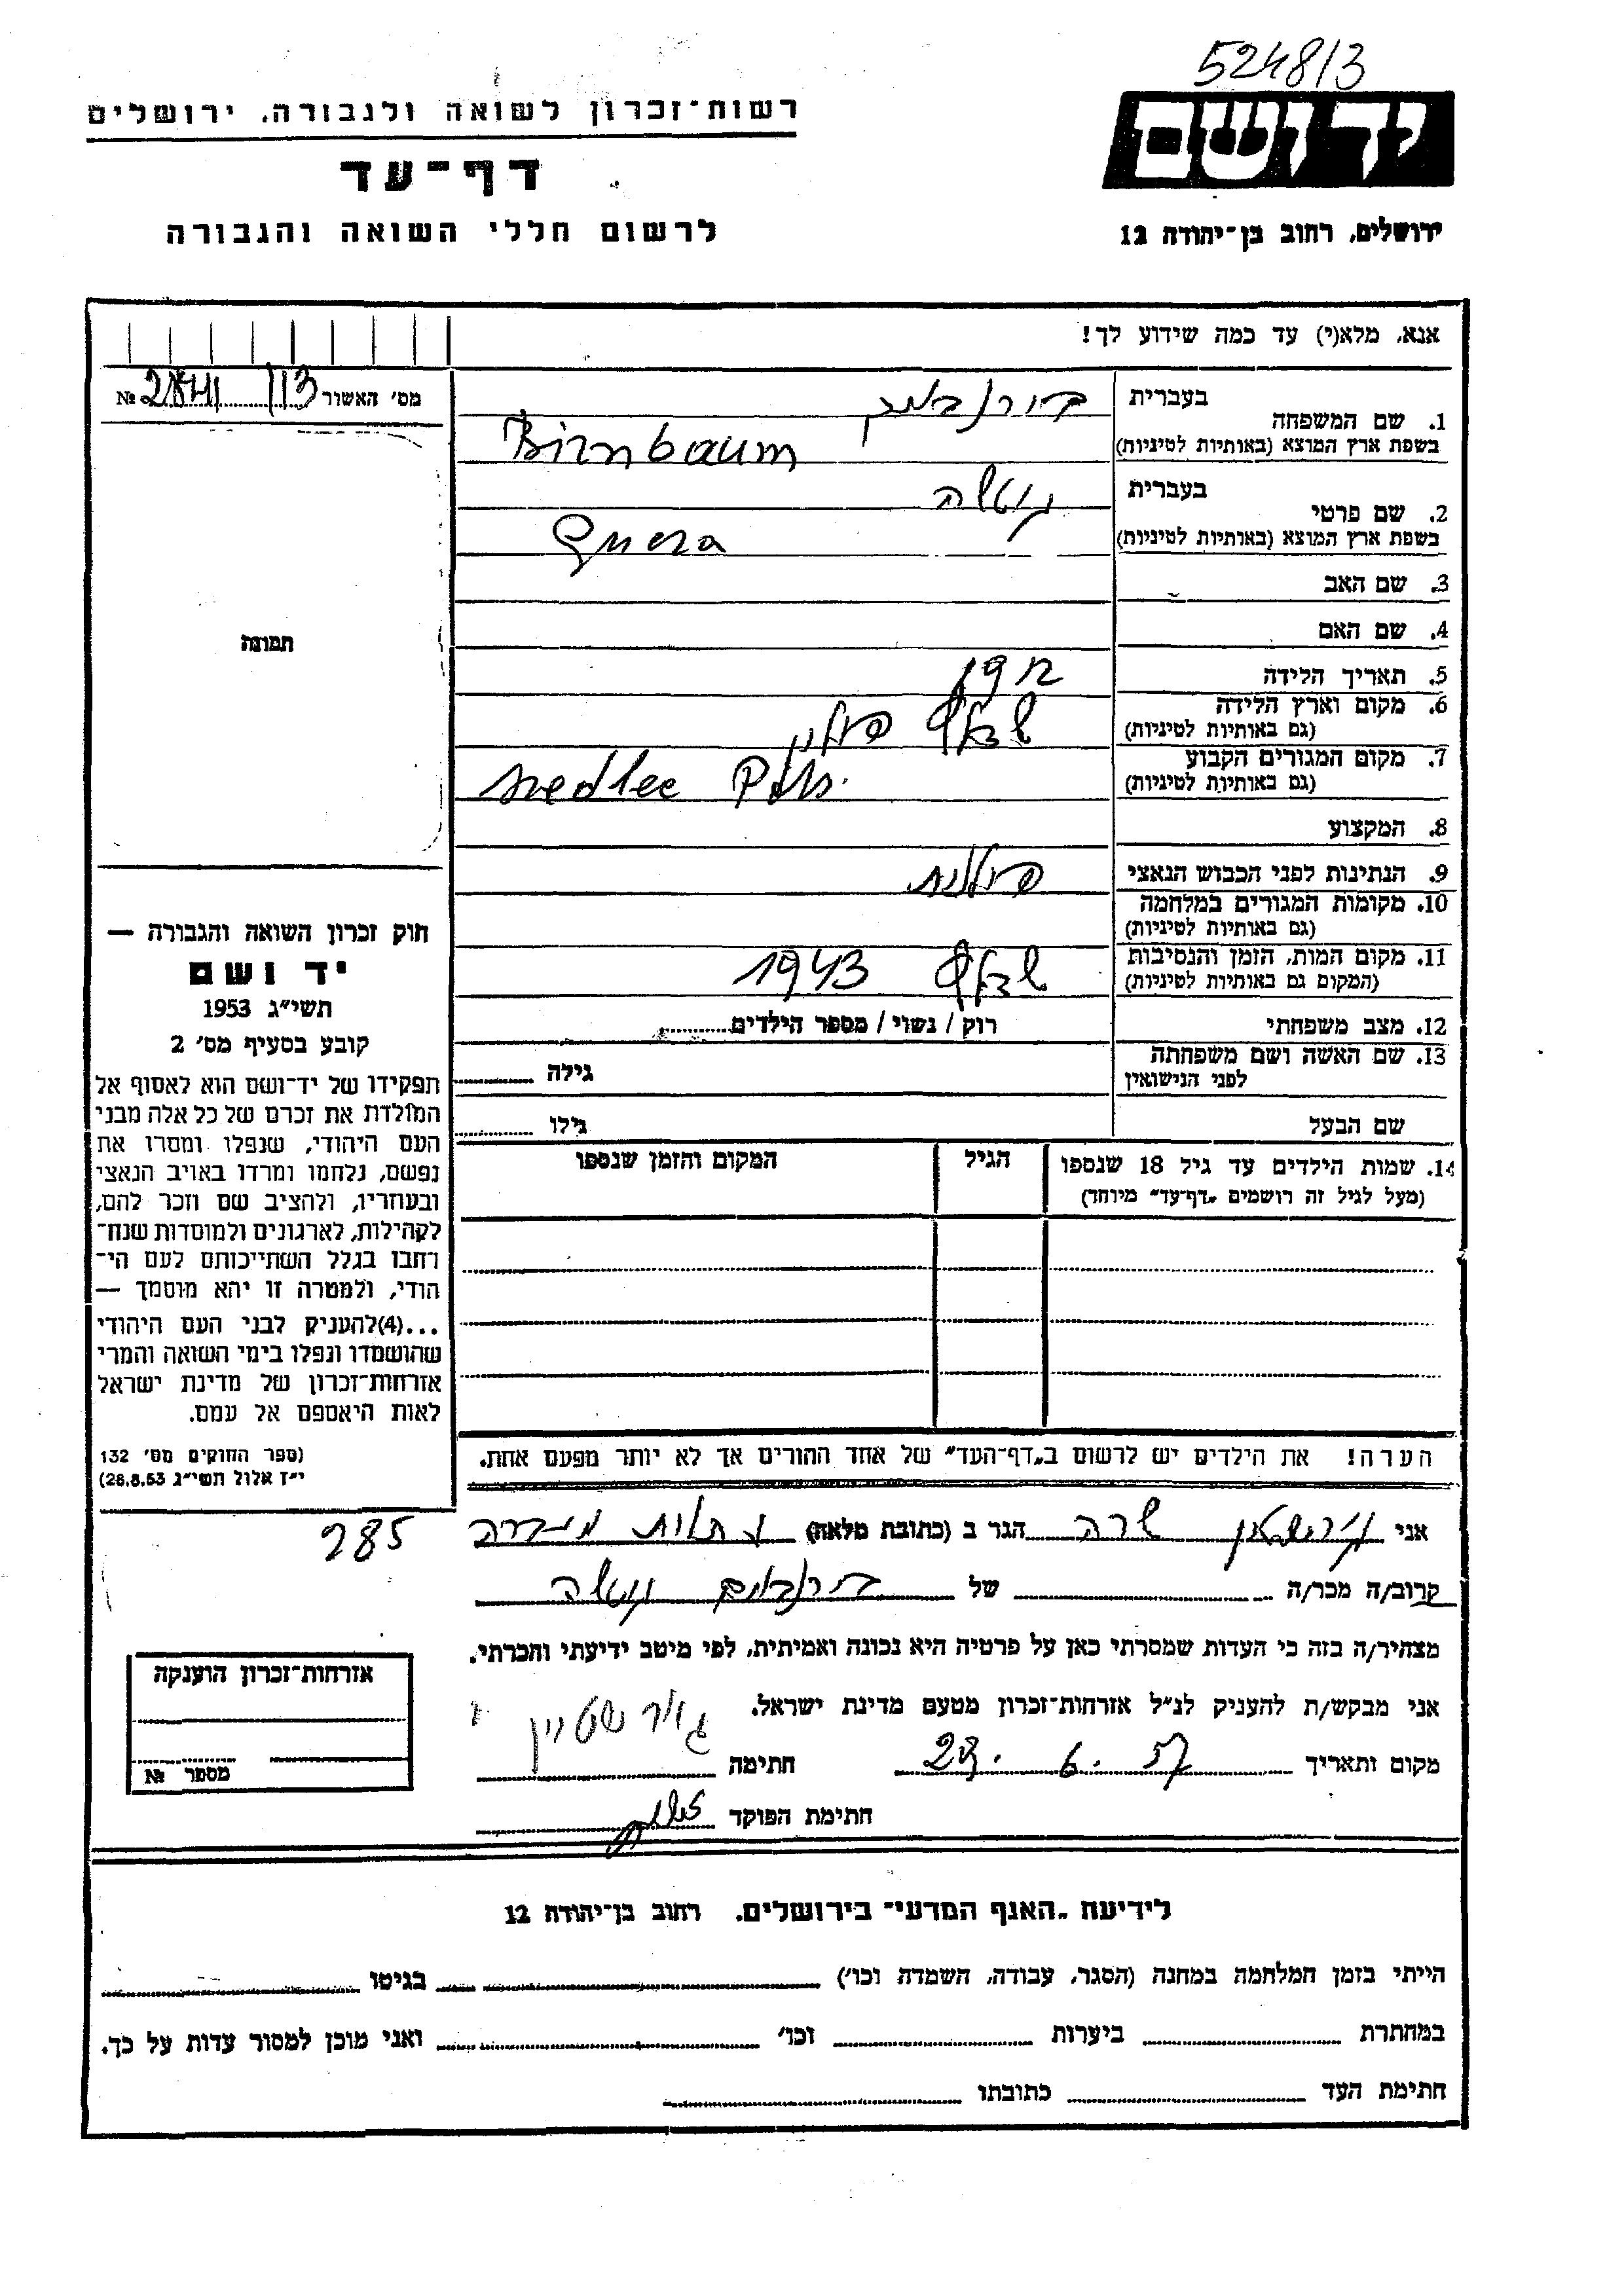 5248/3
רשות־זכרון לשואה ולגבורה, ירושלים
יד ושם
דף־עד
לרשום חללי השואה והגבורה
ירושלים, רחוב בן־יהודה 12
אנא, מלא(י) עד כמה שידוע לך!
מס׳ האשור № 113
1. שם המשפחה
בעברית
בשפת ארץ המוצא (באותיות לטיניות) Birnbaum
2. שם פרטי
בעברית
בשפת ארץ המוצא (באותיות לטיניות)
3. שם האב
4. שם האם
תמונה
5. תאריך הלידה
6. מקום וארץ הלידה שדלץ פולין
(גם באותיות לטיניות)
7. מקום המגורים הקבוע
(גם באותיות לטיניות)
8. המקצוע
9. הנתינות לפני הכבוש הנאצי פולנית
10. מקומות המגורים במלחמה
(גם באותיות לטיניות)
11. מקום המות, הזמן והנסיבות שדלץ 1943
(המקום גם באותיות לטיניות)
12. מצב משפחתי רוק / נשוי / מספר הילדים
13. שם האשה ושם משפחתה
לפני הנישואין גילה
שם הבעל גילו
14. שמות הילדים עד גיל 18 שנספו הגיל המקום והזמן שנספו
(מעל לגיל זה רושמים „דף־עד״ מיוחד)
חוק זכרון השואה והגבורה —
יד ושם
תשי״ג 1953
קובע בסעיף מס׳ 2
תפקידו של יד־ושם הוא לאסוף אל
המולדת את זכרם של כל אלה מבני
העם היהודי, שנפלו ומסרו את
נפשם, נלחמו ומרדו באויב הנאצי
ובעוזריו, ולהציב שם וזכר להם,
לקהילות, לארגונים ולמוסדות שנח־
רבו בגלל השתייכותם לעם הי־
הודי, ולמטרה זו יהא מוסמך —
...(4)להעניק לבני העם היהודי
שהושמדו ונפלו בימי השואה והמרי
אזרחות־זכרון של מדינת ישראל
לאות היאספם אל עמם.
(ספר החוקים מס׳ 132
י״ז אלול תשי״ג 28.8.53)
הערה! את הילדים יש לרשום ב„דף־העד״ של אחד ההורים אך לא יותר מפעם אחת.
285
אני שרה הגר ב (כתובת מלאה)
קרוב/ה מכר/ה של בירנבוים
מצהיר/ה בזה כי העדות שמסרתי כאן על פרטיה היא נכונה ואמיתית, לפי מיטב ידיעתי והכרתי.
אני מבקש/ת להעניק לנ״ל אזרחות־זכרון מטעם מדינת ישראל.
מקום ותאריך 6. 57 חתימה
חתימת הפוקד
אזרחות־זכרון הוענקה
מספר №
לידיעת „האגף המדעי״ בירושלים, רחוב בן־יהודה 12
הייתי בזמן המלחמה במחנה (הסגר, עבודה, השמדה וכו׳) בגיטו
במחתרת ביערות וכו׳ ואני מוכן למסור עדות על כך.
חתימת העד כתובתו